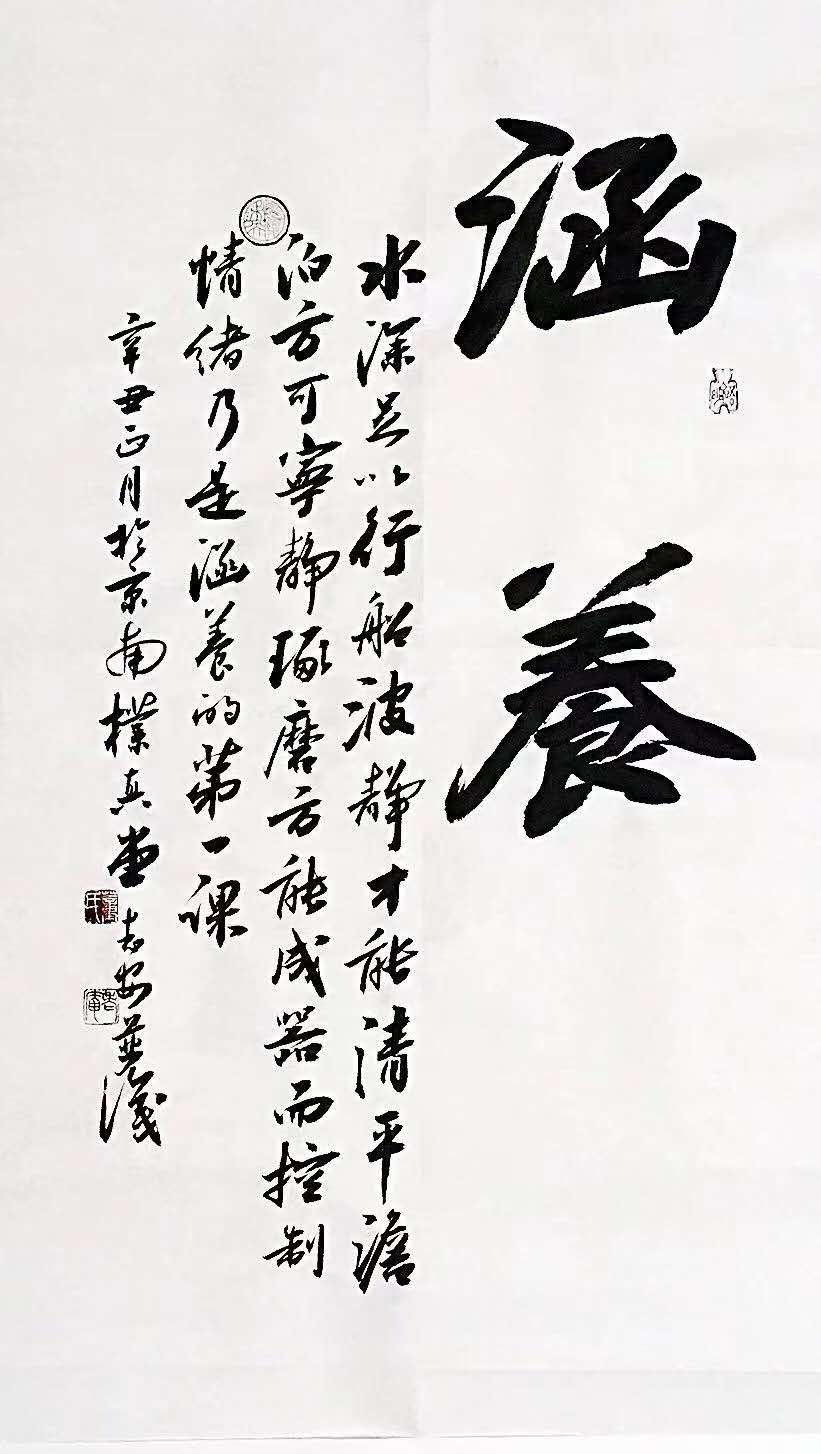 涵養
水深足以行船波静才能清平澹
泊方可寧静琢磨方能成器而控制
情绪乃是涵養的第一课
辛丑正月於京南樸真堂志安